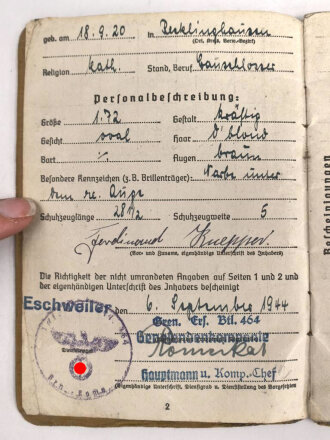 geb. am 18.9.20 in Recklinghausen
(Ort, Kreis, Verw.-Bezirk)
Religion kath. Stand, Beruf Bauschlosser
Personalbeschreibung:
Größe 1.72 Gestalt kräftig
Gesicht oval Haar d'blond
Bart ./. Augen braun
Besondere Kennzeichen (z.B. Brillenträger): Narbe unter
dem re. Auge
Schuhzeuglänge 28½ Schuhzeugweite 5
Ferdinand Knepper
(Vor- und Zuname, eigenhändige Unterschrift des Inhabers)
Die Richtigkeit der nicht umrandeten Angaben auf Seiten 1 und 2 und
der eigenhändigen Unterschrift des Inhabers bescheinigt
Eschweiler, den 6. September 1944
Gren. Ers. Btl. 464
Genesendenkompanie
Hauptmann u. Komp.-Chef
(Eigenhändige Unterschrift, Dienstgrad u. Dienststellung des Vorgesetzten)
2
Bescheinigungen